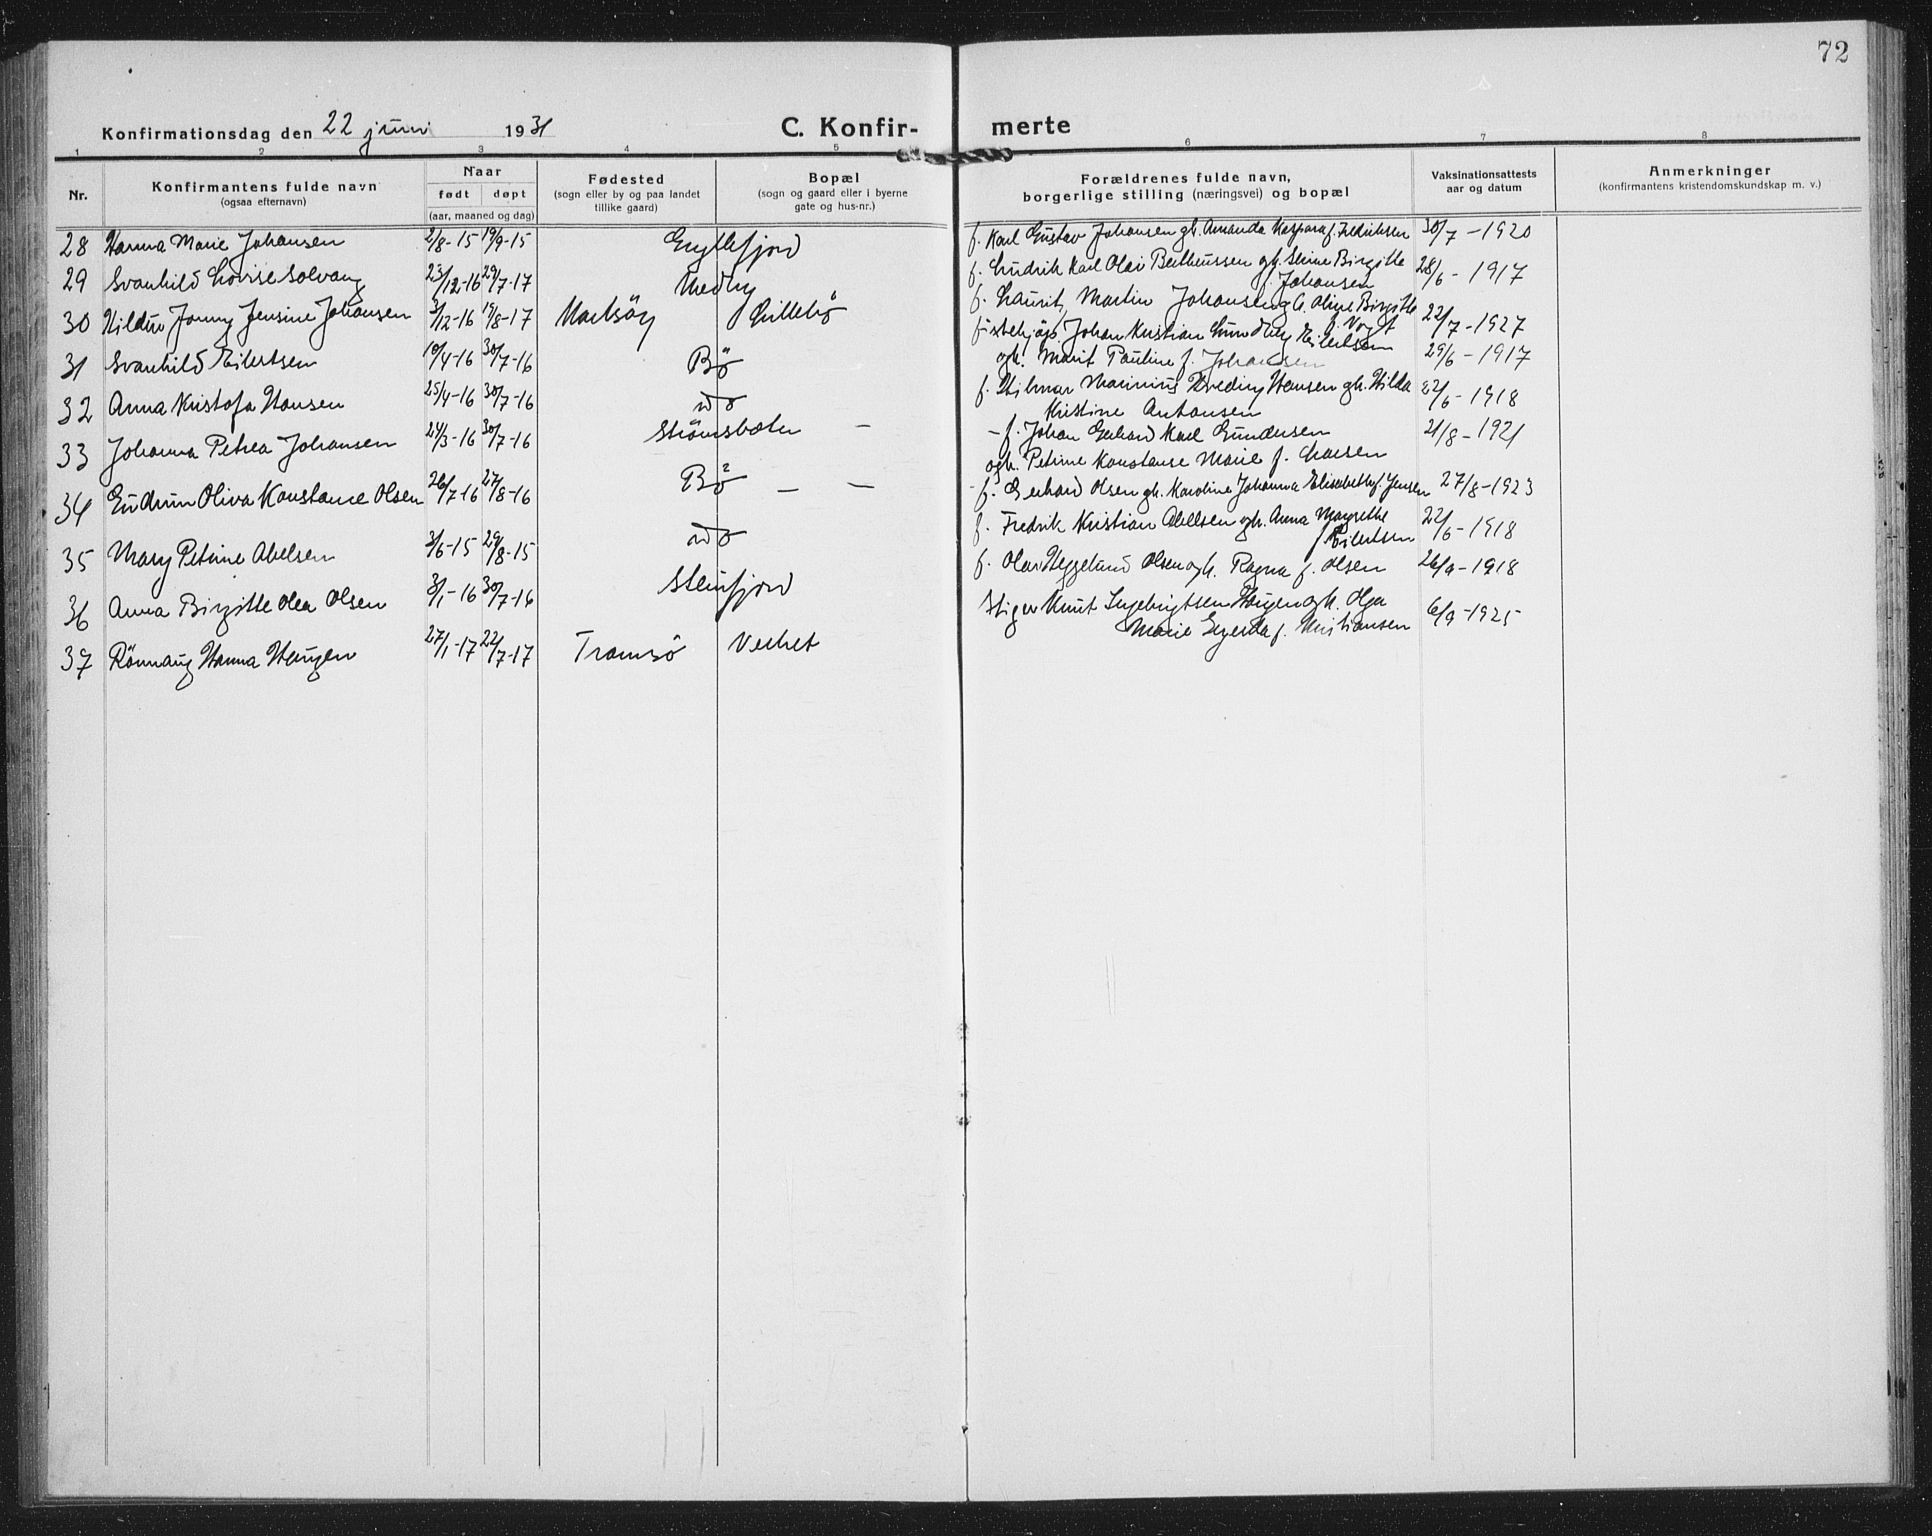 72
Konfirmationsdag den 22 juni 1931
C. Konfir-merte
1 2 3 4 5 6 7 8
Nr.
Konfirmantens fulde navn
(ogsaa efternavn)
Naar
født døpt
(aar, maaned og dag)
Fødested
(sogn eller by og paa landet
tillike gaard)
Bopæl
(sogn og gaard eller i byerne
gate og hus-nr.)
Forældrenes fulde navn,
borgerlige stilling (næringsvei) og bopæl
Vaksinationsattests
aar og datum
Anmerkninger
(konfirmantens kristendomskundskap m. v.)
28 Hanna Marie Johansen 2/8-15 19/9-15 Gryllefjord f. Karl Gustav Johansen gh. Amanda Kaspara f. Fredriksen 30/7-1920
29 Svanhild Lovise Solvang 23/12-16 29/7-17 Medby f. Ludvik Karl Olai Bertheussen gh. Stine Birgitte
f. Johansen 28/6-1917
30 Hildur Jenny Jensine Johansen 3/12-16 19/8-17 Lillebø f. Laurits Martin Johansen gh. Oline Birgitte
f. Vogt 22/7-1927
31 Svanhild Eilertsen 10/4-16 30/7-16 Bø Johan Kristian Lundberg Eilertsen
gh. Marit Pauline f. Johansen 29/6-1917
32 Anna Kristofa Hansen 25/4-16 30/7-16 do f. Hilmar Marinius Breding Hansen gh. Hilda
Kristine Antonsen 22/6-1918
33 Johanna Petrea Johansen 24/3-16 30/7-16 Strømsbotn - - f. Johan Gerhard Karl Gundersen
ogh. Petrine Konstanse Marie f. Larsen 21/8-1921
34 Gudrun Oliva Konstanse Olsen 26/7-16 27/8-16 Bø - - - f. Gerhard Olsen gh. Karoline Johanna Elisabeth f. Jensen 27/8-1923
35 Mary Petrine Abelsen 3/6-15 29/8-15 do f. Fredrik Kristian Abelsen ogh. Anna Margrethe
f. Eilertsen 22/6-1918
36 Anna Birgitte Olea Olsen 8/1-16 30/7-16 Steinfjord f. Olai Heggelund Olsen ogh. Ragna f. Olsen 26/9-1918
37 Rönnaug Hanna Haugen 27/1-17 22/7-17 Tromsø Verket Stiger Knut Ingebrigtsen Haugen ogh. Olga
Marie Gjerda f. Kristiansen 6/9-1925